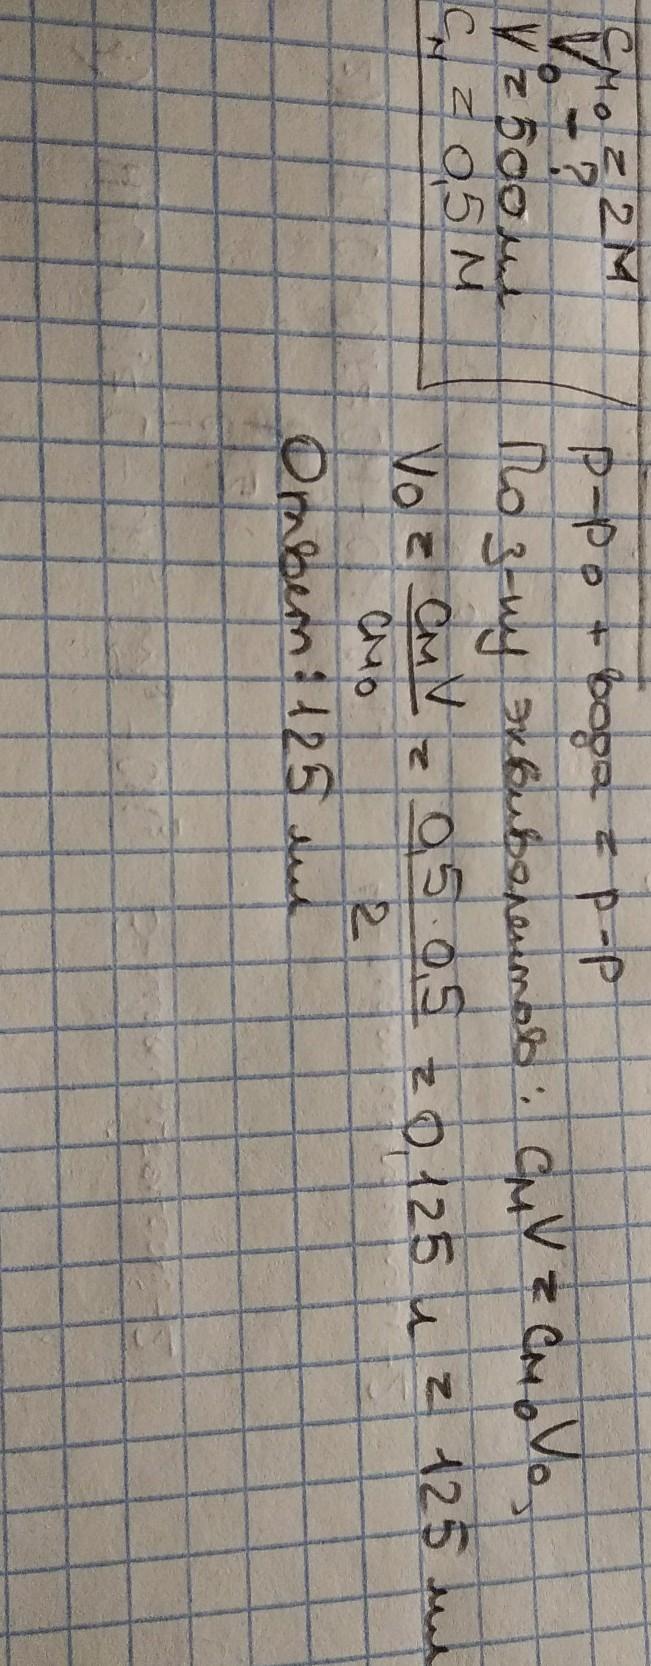 Cм₀ = 2M
V₀ - ?
V = 500 мл
Cн = 0,5 N
р-р₀ + вода = р-р
По з-ну эквивалентов: CмV = Cм₀V₀,
V₀ = CмV / Cм₀ = 0,5 · 0,5 / 2 = 0,125 л = 125 мл
Ответ: 125 мл